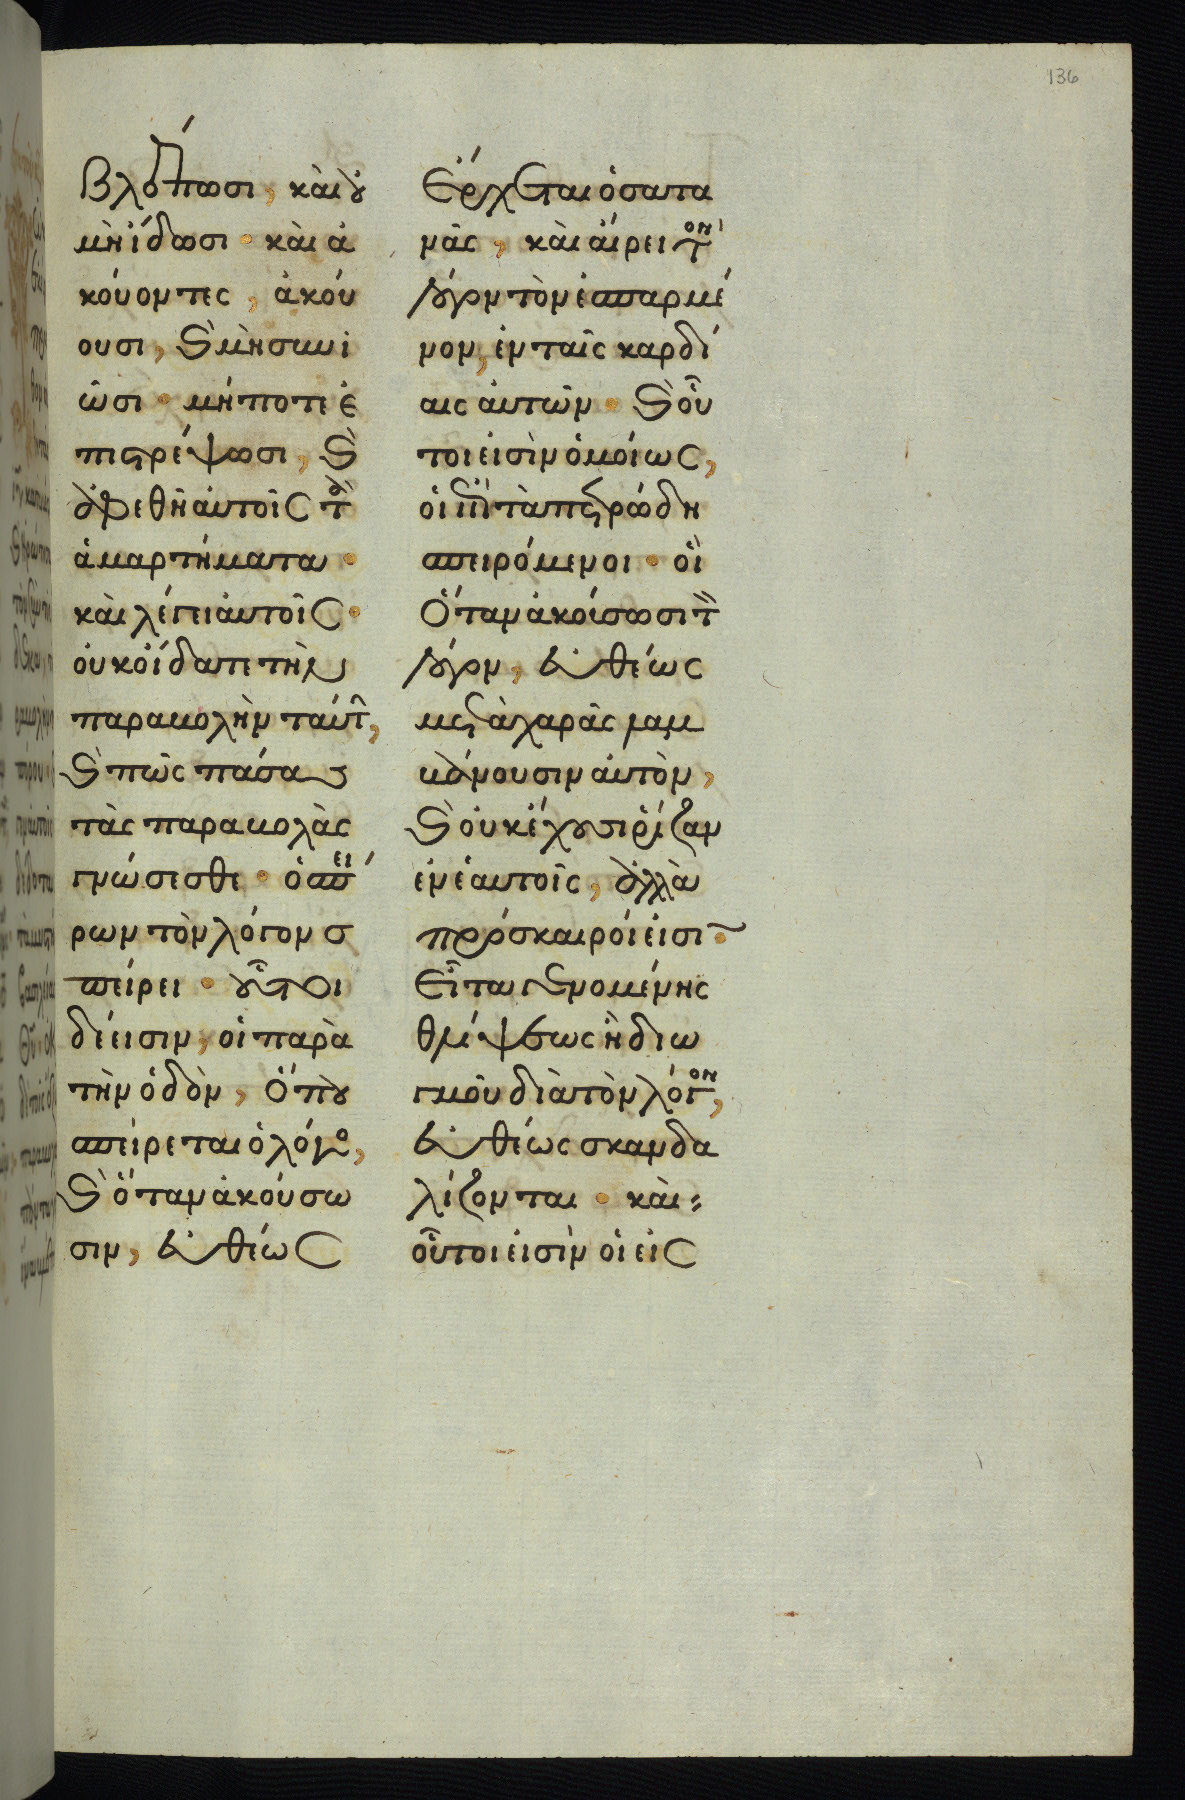 136
Βλέπωσι, καὶ ȣ
μὴ ἴδωσι · καὶ ἀ
κούοντες, ἀκού
ουσι, ϗ μὴ συνι
ῶσι · μήποτε ἐ
πιστρέψωσι, ϗ
ἀφεθῆ αὐτοῖς τὰ
ἁμαρτήματα ·
καὶ λέγει αὐτοῖς ·
οὐκ οἴδατε τὴν
παραβολὴν ταύτ,
ϗ πῶς πάσας
τὰς παραβολὰς
γνώσεσθε · ὁ σπεί
ρων τὸν λόγον σ
πείρει · ȣ̃τοι
δέ εἰσιν, οἱ παρὰ
τὴν ὁδὸν, ὅπȣ
σπείρεται ὁ λόγο,
ϗ ὅταν ἀκούσω
σιν, εὐθέως
Ἔρχεται ὁ σατα
νᾶς, καὶ αἴρει τὸν
λόγον τὸν ἐσπαρμέ
νον, ἐν ταῖς καρδί
αις αὐτῶν · ϗ οὗ
τοι εἰσὶν ὁμοίως,
οἱ ἐπὶ τὰ πετρώδη
σπειρόμενοι · οἳ
Ὅταν ἀκούσωσι τ
λόγον, εὐθέως
μετὰ χαρᾶς λαμ
βάνουσιν αὐτὸν,
ϗ οὐκ ἔχȣσι ῥίζαν
ἐν ἑαυτοῖς, ἀλλὰ
πρόσκαιροί εἰσι ·
Εἶτα γενομένης
θλίψεως ἢ διω
γμοῦ διὰ τὸν λόγον,
εὐθέως σκανδα
λίζονται · καὶ
οὗτοι εἰσὶν οἱ εἰς